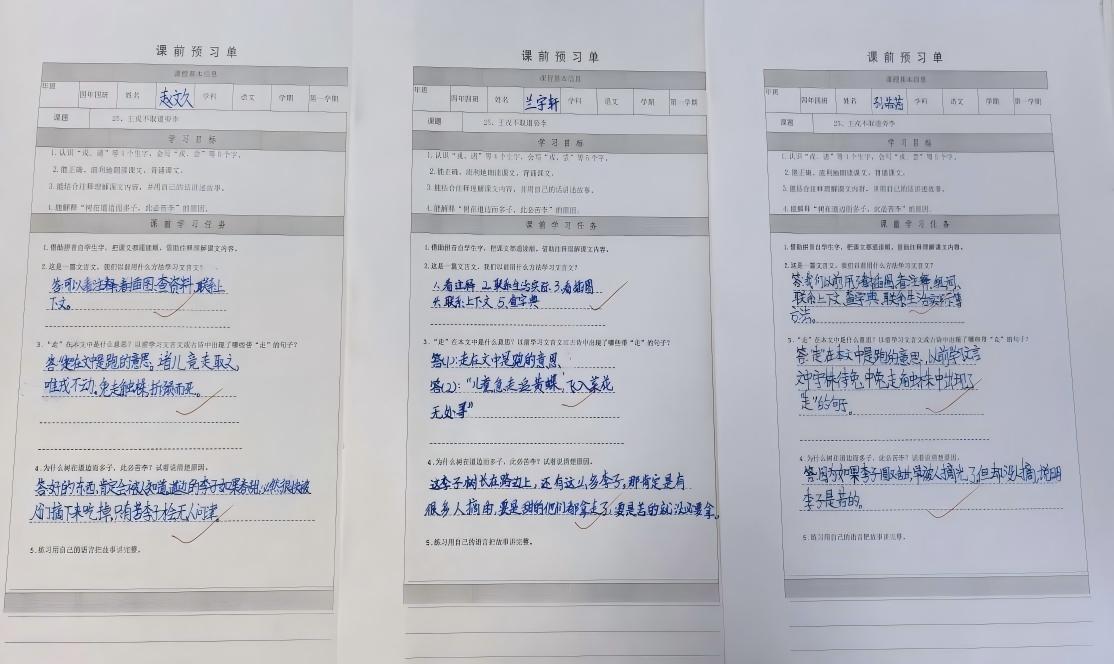 课前预习单
课程基本信息
年班 四年四班 姓名 赵文久 学科 语文 学期 第一学期
课题 25、王戎不取道旁李
学习目标
1.认识“戎、诸”等4个生字，会写“戎、尝”等5个字。
2.能正确、流利地朗读课文，背诵课文。
3.能结合注释理解课文内容，并用自己的话讲述故事。
4.能解释“树在道边而多子，此必苦李”的原因。
课前学习任务
1.借助拼音自学生字，把课文都通读顺，借助注释理解课文内容。
2.这是一篇文言文，我们以前用什么方法学习文言文？
答可以看注释,看插图,查资料,联系上
下文。
3.“走”在本文中是什么意思？以前学习文言文或古诗中出现了哪些带“走”的句子？
答“走”在文中是跑的意思，诸儿竞走取之，
唯戎不动。兔走触株，折颈而死。
4.为什么树在道边而多子，此必苦李？试着说清楚原因。
答好的东西,肯定会被人知道,道边的李子如果香甜,必然很快被
人们摘下来吃掉,只有苦李子检无人问津。
5.练习用自己的语言把故事讲完整。
课前预习单
课程基本信息
年班 四年四班 姓名 兰宇轩 学科 语文 学期 第一学期
课题 25、王戎不取道旁李
学习目标
1.认识“戎、诸”等4个生字，会写“戎、尝”等5个字。
2.能正确、流利地朗读课文，背诵课文。
3.能结合注释理解课文内容，并用自己的话讲述故事。
4.能解释“树在道边而多子，此必苦李”的原因。
课前学习任务
1.借助拼音自学生字，把课文都通读顺，借助注释理解课文内容。
2.这是一篇文言文，我们以前用什么方法学习文言文？
1.看注释 2.联系生活实际 3.看插图
4.联系上下文 5.查字典
3.“走”在本文中是什么意思？以前学习文言文或古诗中出现了哪些带“走”的句子？
答(1):走在文中是跑的意思
答(2):“儿童急走追黄蝶，飞入菜花
无处寻”
4.为什么树在道边而多子，此必苦李？试着说清楚原因。
这李子树长在路边上，还有这么多李子，那肯定是有
很多人摘的，要是甜的他们都拿走了，要是苦的就没必要拿。
5.练习用自己的语言把故事讲完整。
课前预习单
课程基本信息
年班 四年四班 姓名 学科 语文 学期 第一学期
课题 25、王戎不取道旁李
学习目标
1.认识“戎、诸”等4个生字，会写“戎、尝”等5个字。
2.能正确、流利地朗读课文，背诵课文。
3.能结合注释理解课文内容，并用自己的话讲述故事。
4.能解释“树在道边而多子，此必苦李”的原因。
课前学习任务
1.借助拼音自学生字，把课文都通读顺，借助注释理解课文内容。
2.这是一篇文言文，我们以前用什么方法学习文言文？
答:我们以前用了看插图,看注释,组词、
联系上下文、查字典、联系生活实际等
方法。
3.“走”在本文中是什么意思？以前学习文言文或古诗中出现了哪些带“走”的句子？
答:“走”在本文中是跑的意思，以前学文言
文中守株待兔，中兔走触株中出现了
“走”的句子。
4.为什么树在道边而多子，此必苦李？试着说清楚原因。
答:因为如果李子甜的话,早被人摘光了,但却没人摘,说明
李子是苦的。
5.练习用自己的语言把故事讲完整。